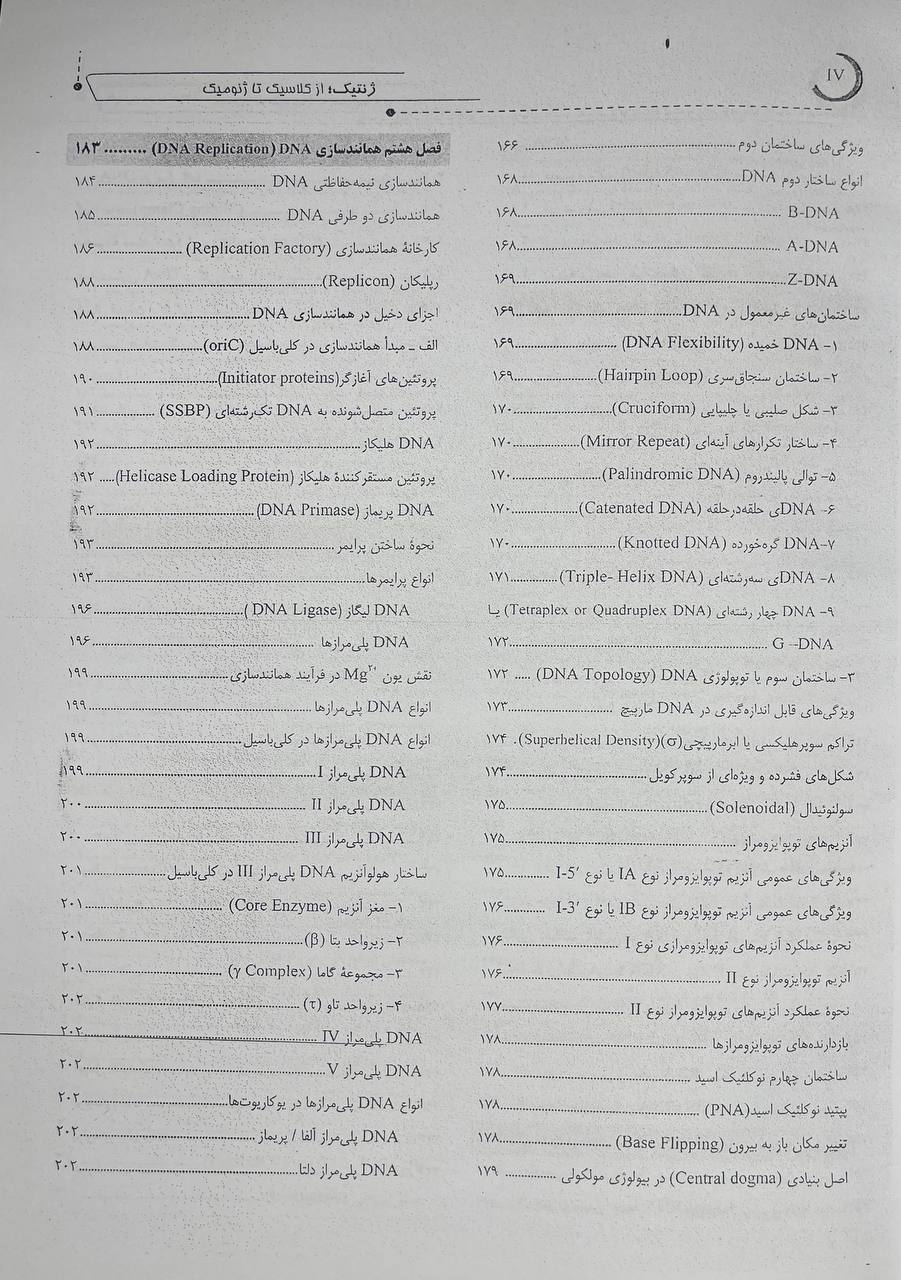 IV
ژنتیک؛ از کلاسیک تا ژنومیک
ویژگی‌های ساختمان دوم ... ۱۶۶
انواع ساختار دوم DNA ... ۱۶۸
B-DNA ... ۱۶۸
A-DNA ... ۱۶۸
Z-DNA ... ۱۶۹
ساختمان‌های غیرمعمول در DNA ... ۱۶۹
۱- DNA خمیده (DNA Flexibility) ... ۱۶۹
۲- ساختمان سنجاق‌سری (Hairpin Loop) ... ۱۶۹
۳- شکل صلیبی یا چلیپایی (Cruciform) ... ۱۷۰
۴- ساختار تکرارهای آینه‌ای (Mirror Repeat) ... ۱۷۰
۵- توالی پالیندروم (Palindromic DNA) ... ۱۷۰
۶- DNAی حلقه‌درحلقه (Catenated DNA) ... ۱۷۰
۷-DNA گره‌خورده (Knotted DNA) ... ۱۷۰
۸- DNAی سه‌رشته‌ای (Triple- Helix DNA) ... ۱۷۱
۹- DNA چهار رشته‌ای (Tetraplex or Quadruplex DNA) یا
G –DNA ... ۱۷۲
۳- ساختمان سوم یا توپولوژی DNA (DNA Topology) ..... ۱۷۲
ویژگی‌های قابل اندازه‌گیری در DNA مارپیچ ... ۱۷۳
تراکم سوپرهلیکسی یا ابرمارپیچی(σ)(Superhelical Density). ۱۷۴
شکل‌های فشرده و ویژه‌ای از سوپرکویل ... ۱۷۴
سولنوئیدال (Solenoidal) ... ۱۷۵
آنزیم‌های توپوایزومراز ... ۱۷۵
ویژگی‌های عمومی آنزیم توپوایزومراز نوع IA یا نوع I-5′ ... ۱۷۵
ویژگی‌های عمومی آنزیم توپوایزومراز نوع IB یا نوع I-3′ ... ۱۷۶
نحوهٔ عملکرد آنزیم‌های توپوایزومرازی نوع I ... ۱۷۶
آنزیم توپوایزومراز نوع II ... ۱۷۶
نحوهٔ عملکرد آنزیم‌های توپوایزومراز نوع II ... ۱۷۷
بازدارنده‌های توپوایزومرازها ... ۱۷۸
ساختمان چهارم نوکلئیک اسید ... ۱۷۸
پپتید نوکلئیک اسید(PNA) ... ۱۷۸
تغییر مکان باز به بیرون (Base Flipping) ... ۱۷۸
اصل بنیادی (Central dogma) در بیولوژی مولکولی ... ۱۷۹
فصل هشتم همانندسازی DNA (DNA Replication) ......... ۱۸۳
همانندسازی نیمه‌حفاظتی DNA ... ۱۸۴
همانندسازی دو طرفی DNA ... ۱۸۵
کارخانهٔ همانندسازی (Replication Factory) ... ۱۸۶
رپلیکان (Replicon) ... ۱۸۸
اجزای دخیل در همانندسازی DNA ... ۱۸۸
الف – مبدأ همانندسازی در کلی‌باسیل (oriC) ... ۱۸۸
پروتئین‌های آغازگر(Initiator proteins) ... ۱۹۰
پروتئین متصل‌شونده به DNA تک‌رشته‌ای (SSBP) ... ۱۹۱
DNA هلیکاز ... ۱۹۲
پروتئین مستقرکنندهٔ هلیکاز (Helicase Loading Protein) ..... ۱۹۲
DNA پریماز (DNA Primase) ... ۱۹۲
نحوهٔ ساختن پرایمر ... ۱۹۳
انواع پرایمرها ... ۱۹۳
DNA لیگاز (DNA Ligase ) ... ۱۹۶
DNA پلی‌مرازها ... ۱۹۶
نقش یون Mg²⁺ در فرآیند همانندسازی ... ۱۹۹
انواع DNA پلی‌مرازها ... ۱۹۹
انواع DNA پلی‌مرازها در کلی‌باسیل ... ۱۹۹
DNA پلی‌مراز I ... ۱۹۹
DNA پلی‌مراز II ... ۲۰۰
DNA پلی‌مراز III ... ۲۰۰
ساختار هولوآنزیم DNA پلی‌مراز III در کلی‌باسیل ... ۲۰۱
۱- مغز آنزیم (Core Enzyme) ... ۲۰۱
۲- زیرواحد بتا (β) ... ۲۰۱
۳- مجموعهٔ گاما (γ Complex) ... ۲۰۱
۴- زیرواحد تاو (τ) ... ۲۰۲
DNA پلی‌مراز IV ... ۲۰۲
DNA پلی‌مراز V ... ۲۰۲
انواع DNA پلی‌مرازها در یوکاریوت‌ها ... ۲۰۲
DNA پلی‌مراز آلفا / پریماز ... ۲۰۲
DNA پلی‌مراز دلتا ... ۲۰۲